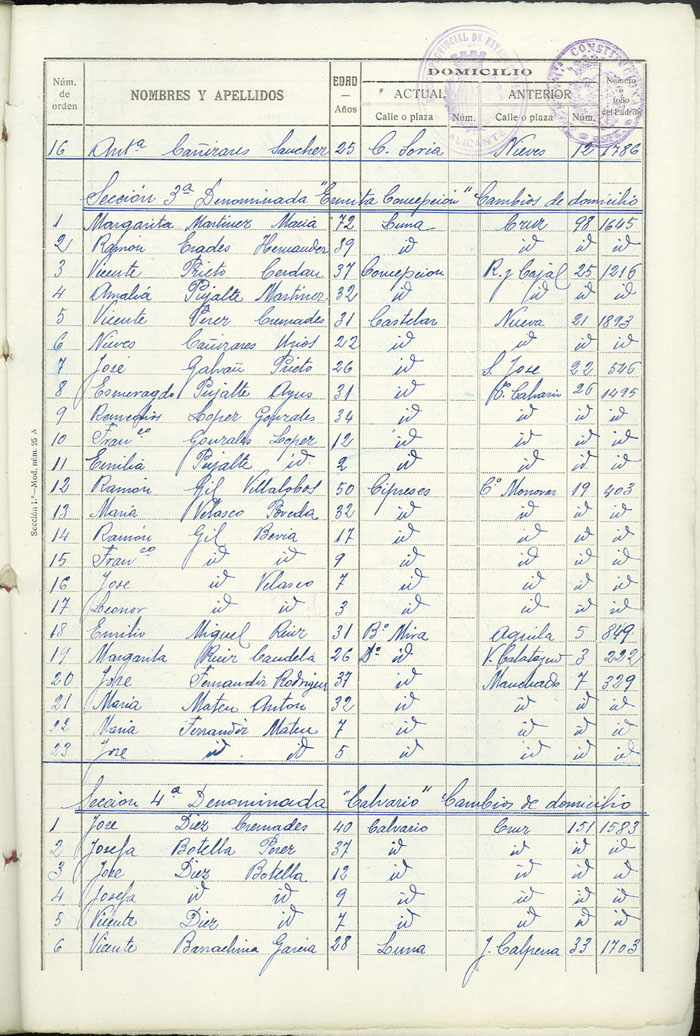 DOMICILIO
Núm. de orden NOMBRES Y APELLIDOS EDAD — Años ACTUAL ANTERIOR Número folio del Padrón
Calle o plaza Núm. Calle o plaza Núm.
16 Antª Cañizares Sanchez 25 C. Soria Nieves 12 1786
Sección 3ª Denominada "Ermita Concepción" Cambios de domicilio
1 Margarita Martinez Maciá 72 Luna Cruz 98 1645
2 Ramón Hernander 39 id id id id
3 Vicente Prieto Cerdan 37 Concepcion R. y Cajal 25 1216
4 Amalia Pujalte Martinez 32 id id id id
5 Vicente Perez Cremades 31 Castelar Nueva 21 1893
6 Nieves Cañizares Urios 22 id id id id
7 José Galvañ Prieto 26 id S. Jose 22 546
8 Esmeragdo Pujalte Ayus 31 id Calvario 26 1495
9 Remedios Lopez Gonzales 34 id id id id
10 Franco Gonzales Lopez 12 id id id id
11 Emilia Pujalte id 2 id id id id
12 Ramón Gil Villalobos 50 Cipreses Cº Monovar 19 403
13 Maria Velasco Poveda 32 id id id id
14 Ramón Gil Beviá 17 id id id id
15 Franco id id 9 id id id id
16 Jose id Velasco 7 id id id id
17 Leonor id id 3 id id id id
18 Emilio Miguel Ruiz 31 Bº Mira Aguila 5 849
19 Margarita Ruiz Candela 26 Dº id V. Calatayud 3 222
20 Jose Fernandez Rodriguez 37 id Manchado 7 329
21 Maria Mateu Anton 32 id id id id
22 Maria Fernandez Mateu 7 id id id id
23 Jose id id 5 id id id id
Sección 4ª Denominada "Calvario" Cambios de domicilio
1 Jose Diez Cremades 40 Calvario Cruz 151 1583
2 Josefa Botella Perez 37 id id id id
3 Jose Diez Botella 12 id id id id
4 Josefa id id 9 id id id id
5 Vicente Diez id 7 id id id id
6 Vicente Garcia 28 Luna J. Calpena 33 1703
Sección 1.ª—Mod. núm. 25 A
PROVINCIAL DE ESTA
ALICANTE
CONSTITU